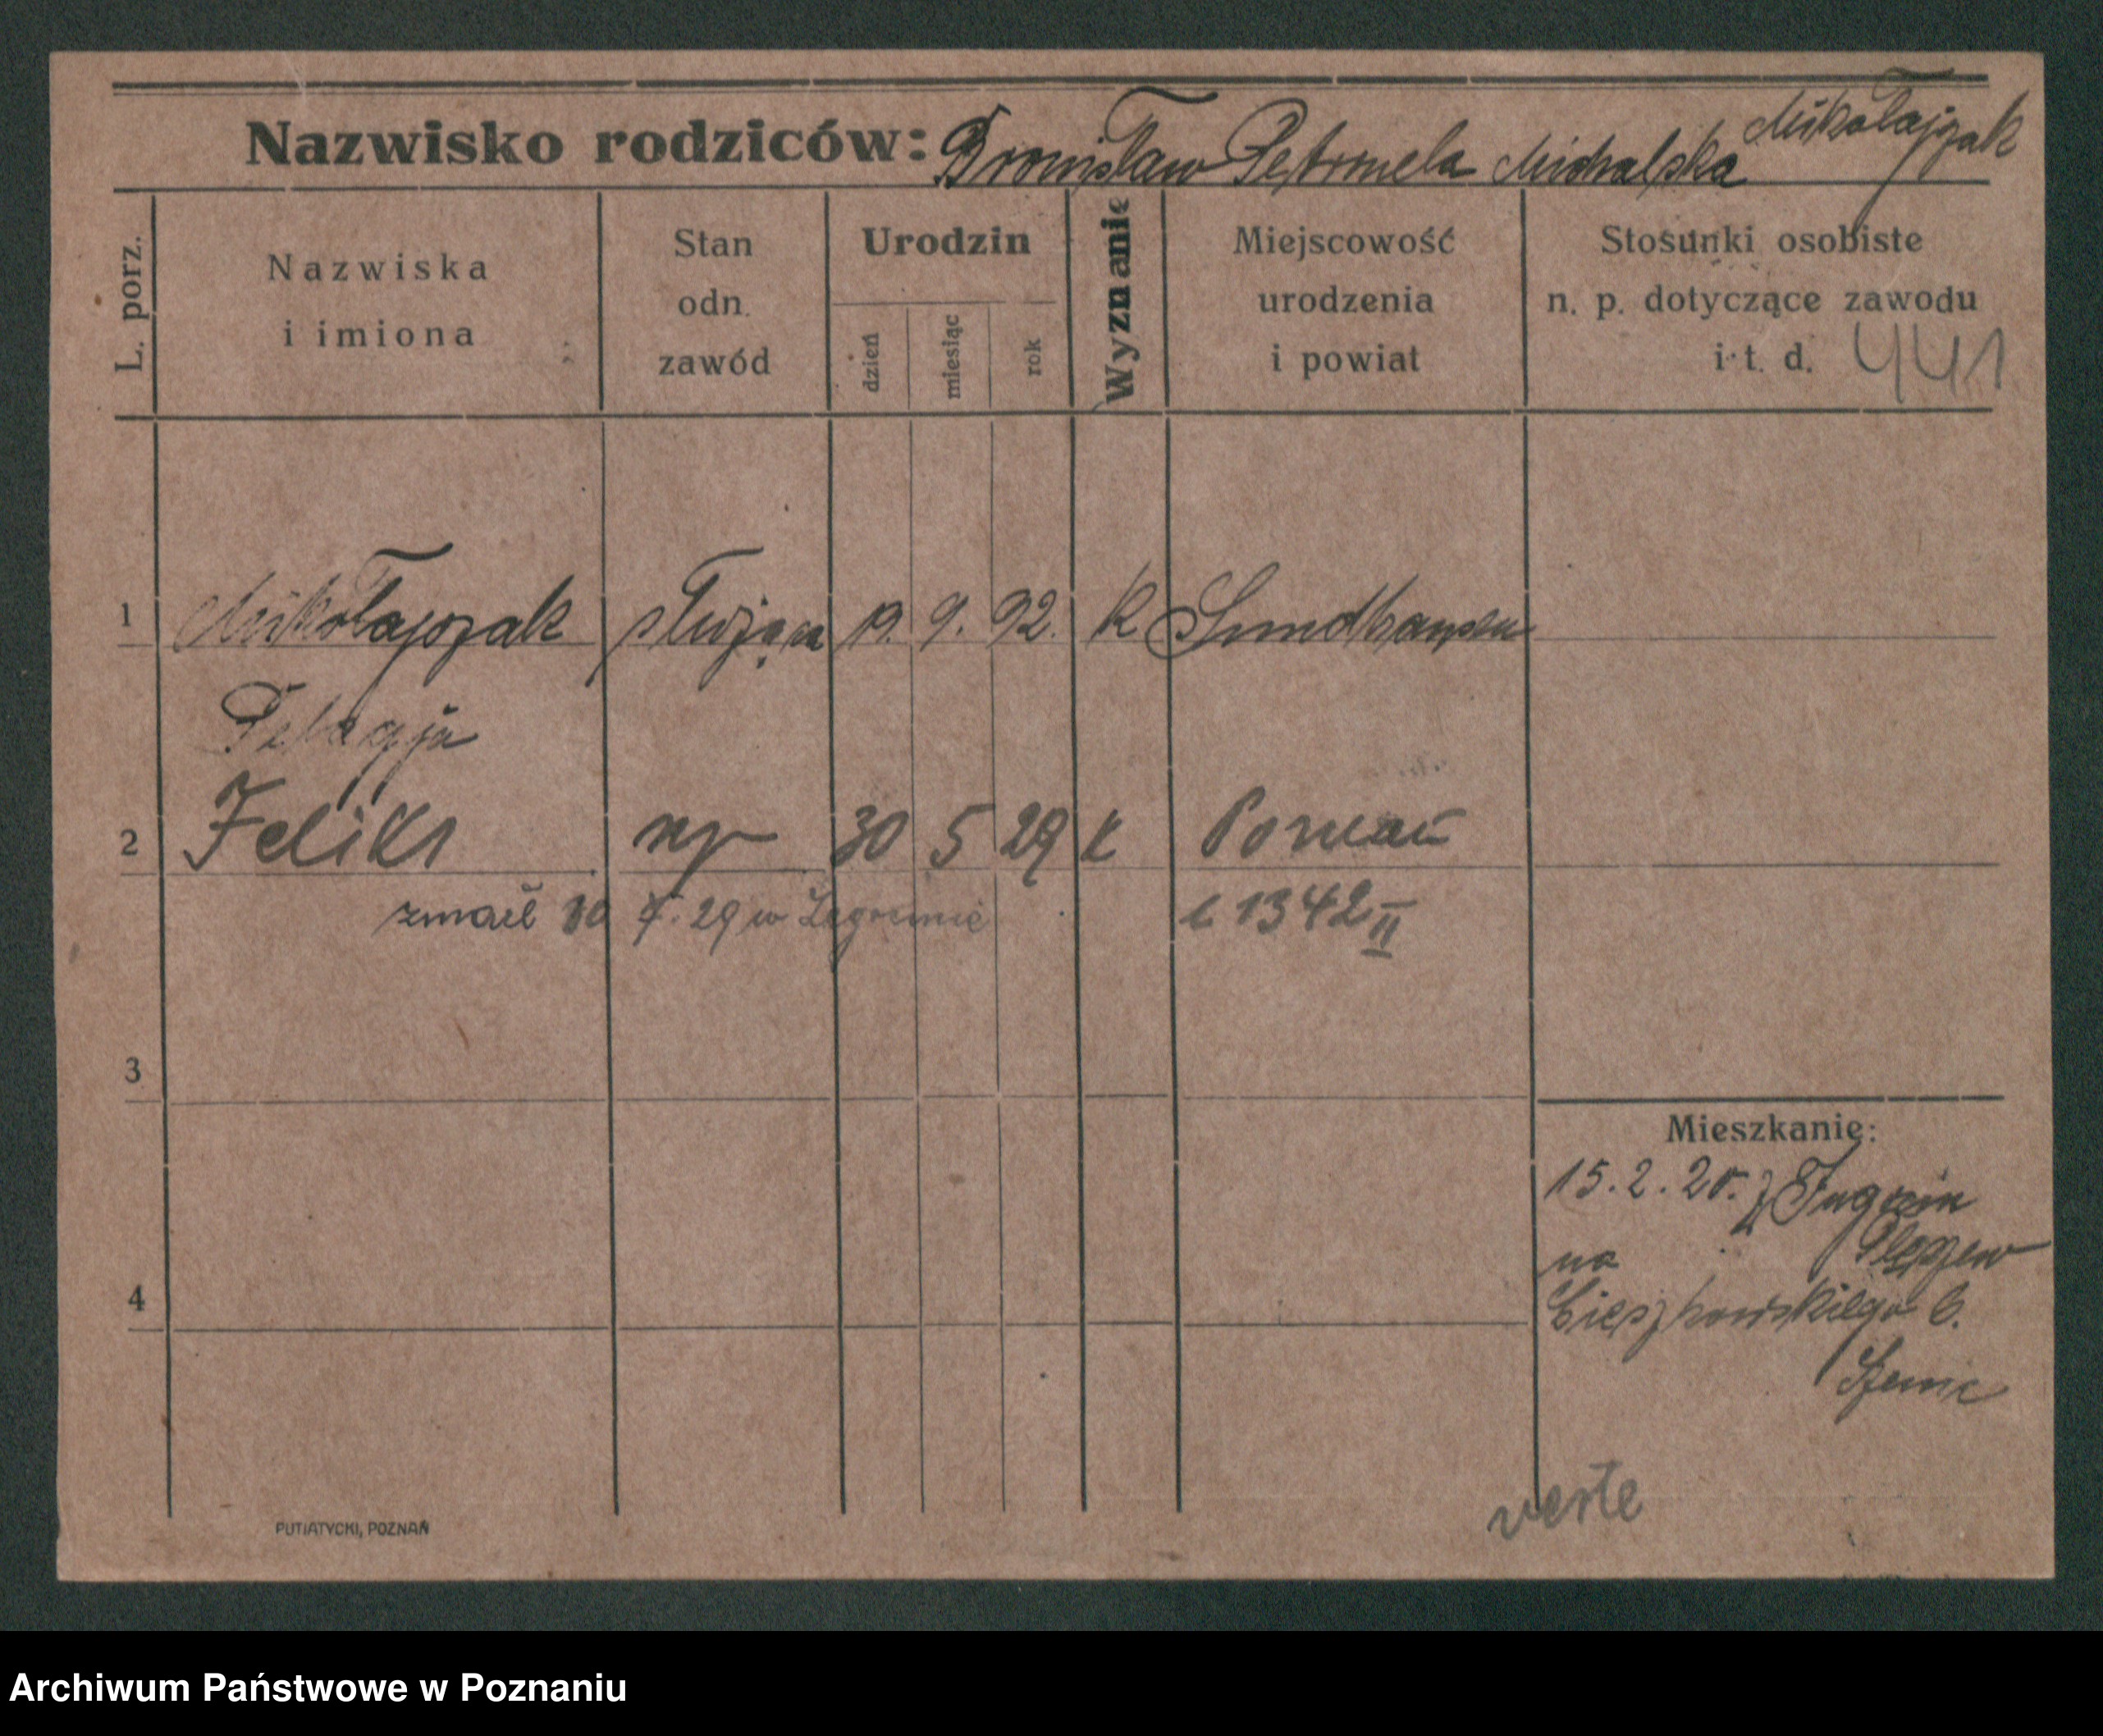 Nazwisko rodziców: Bronisław Petronela Michalska Mikołajczak
L. porz.
Nazwiska i imiona
Stan odn. zawód
Urodzin
dzień
miesiąc
rok
Wyznanie
Miejscowość urodzenia i powiat
Stosunki osobiste n. p. dotyczące zawodu i t. d.
441
1 Mikołajczak służąca 19. 9. 92. K
Pelagja
2 Feliks np 30 5 29 k Poznań
zmarł 30 7. 29 w 1342 II
3
Mieszkanie:
15.2.25. z
na
4
Cieszkowskiego 6.
verte
PUTIATYCKI, POZNAŃ
Archiwum Państwowe w Poznaniu